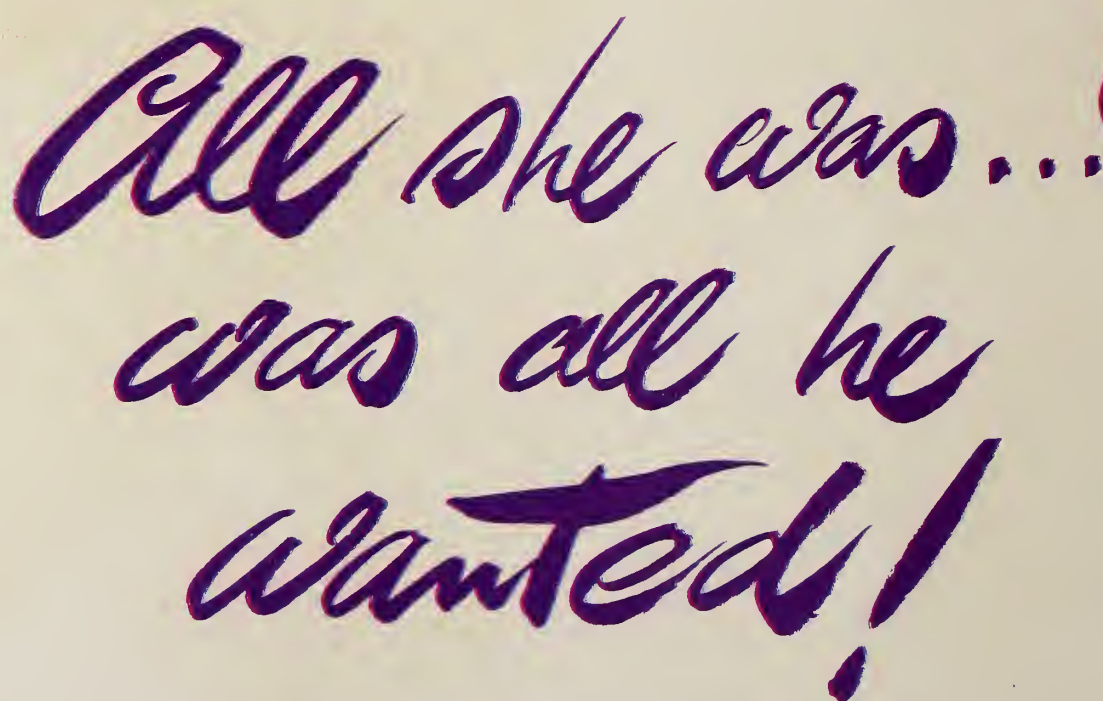 All she was...
was all he
wanted!